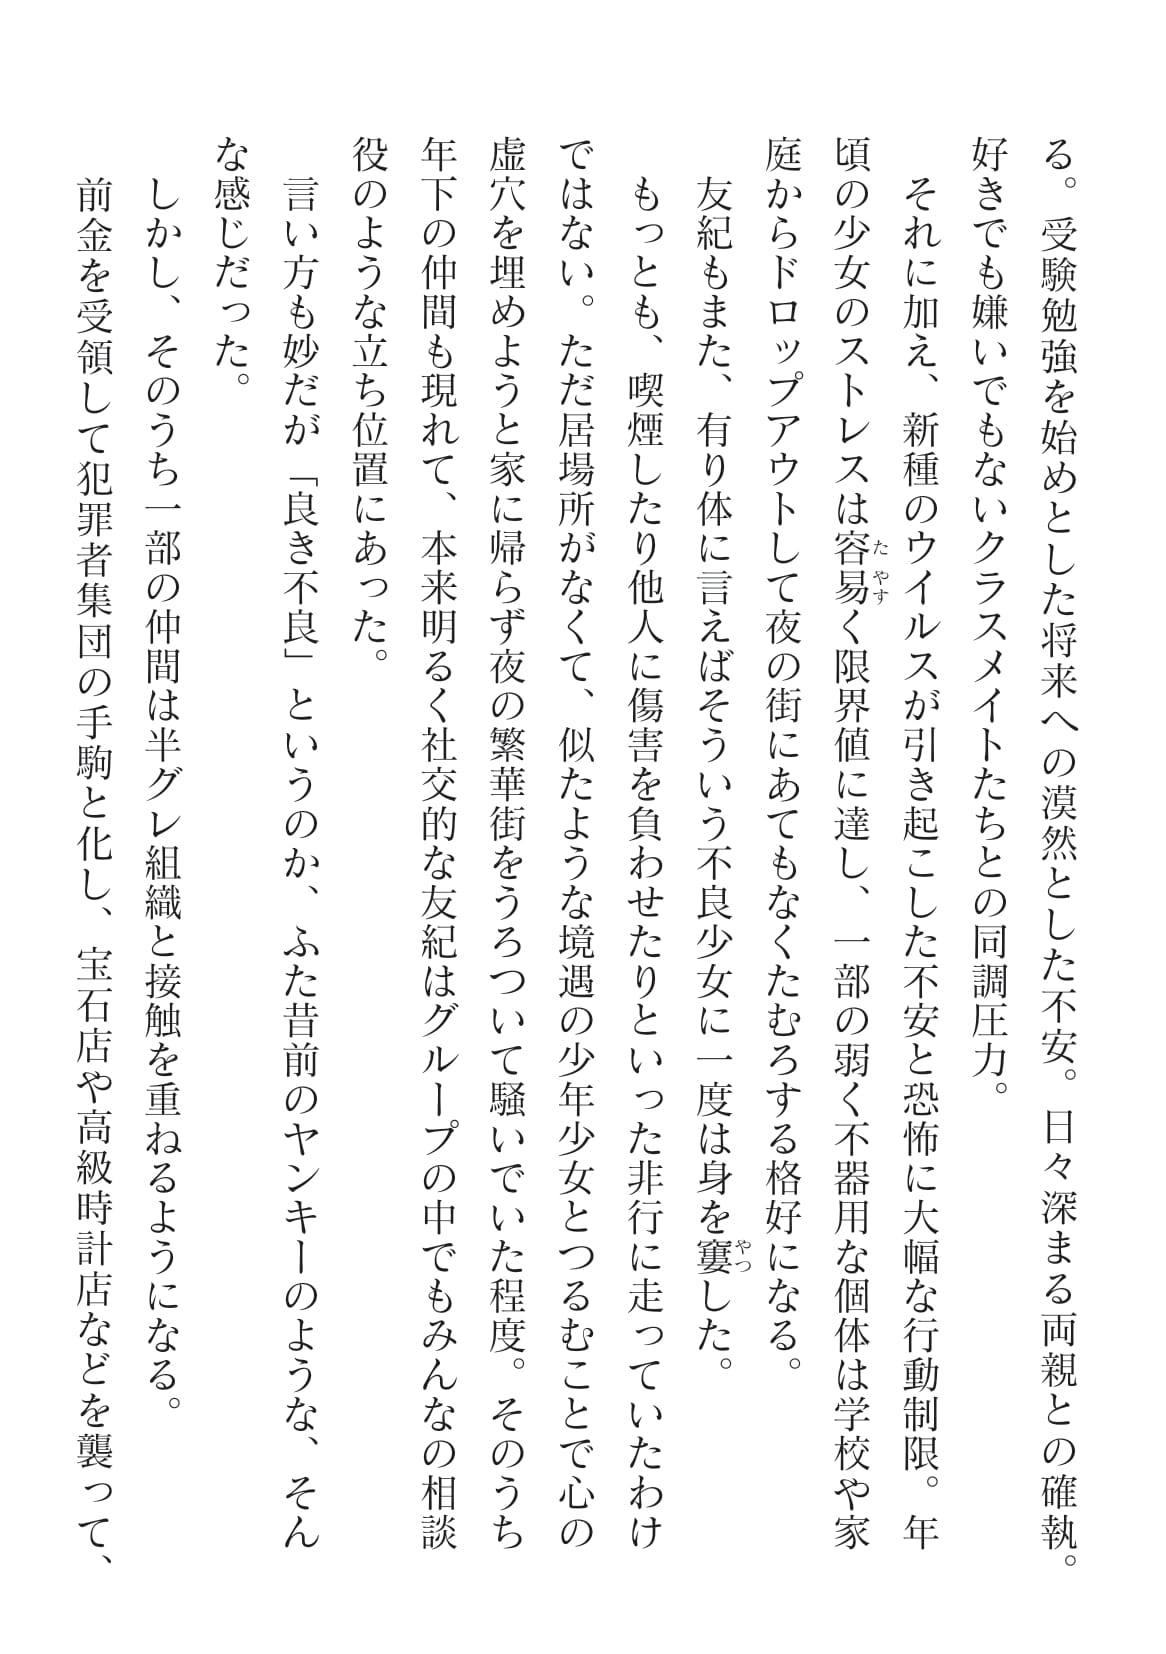 る。受験勉強を始めとした将来への漠然とした不安。日々深まる両親との確執。
好きでも嫌いでもないクラスメイトたちとの同調圧力。
それに加え、新種のウイルスが引き起こした不安と恐怖に大幅な行動制限。年
頃の少女のストレスは容易く限界値に達し、一部の弱く不器用な個体は学校や家
庭からドロップアウトして夜の街にあてもなくたむろする格好になる。
友紀もまた、有り体に言えばそういう不良少女に一度は身を窶した。
もっとも、喫煙したり他人に傷害を負わせたりといった非行に走っていたわけ
ではない。ただ居場所がなくて、似たような境遇の少年少女とつるむことで心の
虚穴を埋めようと家に帰らず夜の繁華街をうろついて騒いでいた程度。そのうち
年下の仲間も現れて、本来明るく社交的な友紀はグループの中でもみんなの相談
役のような立ち位置にあった。
言い方も妙だが「良き不良」というのか、ふた昔前のヤンキーのような、そん
な感じだった。
しかし、そのうち一部の仲間は半グレ組織と接触を重ねるようになる。
前金を受領して犯罪者集団の手駒と化し、宝石店や高級時計店などを襲って、